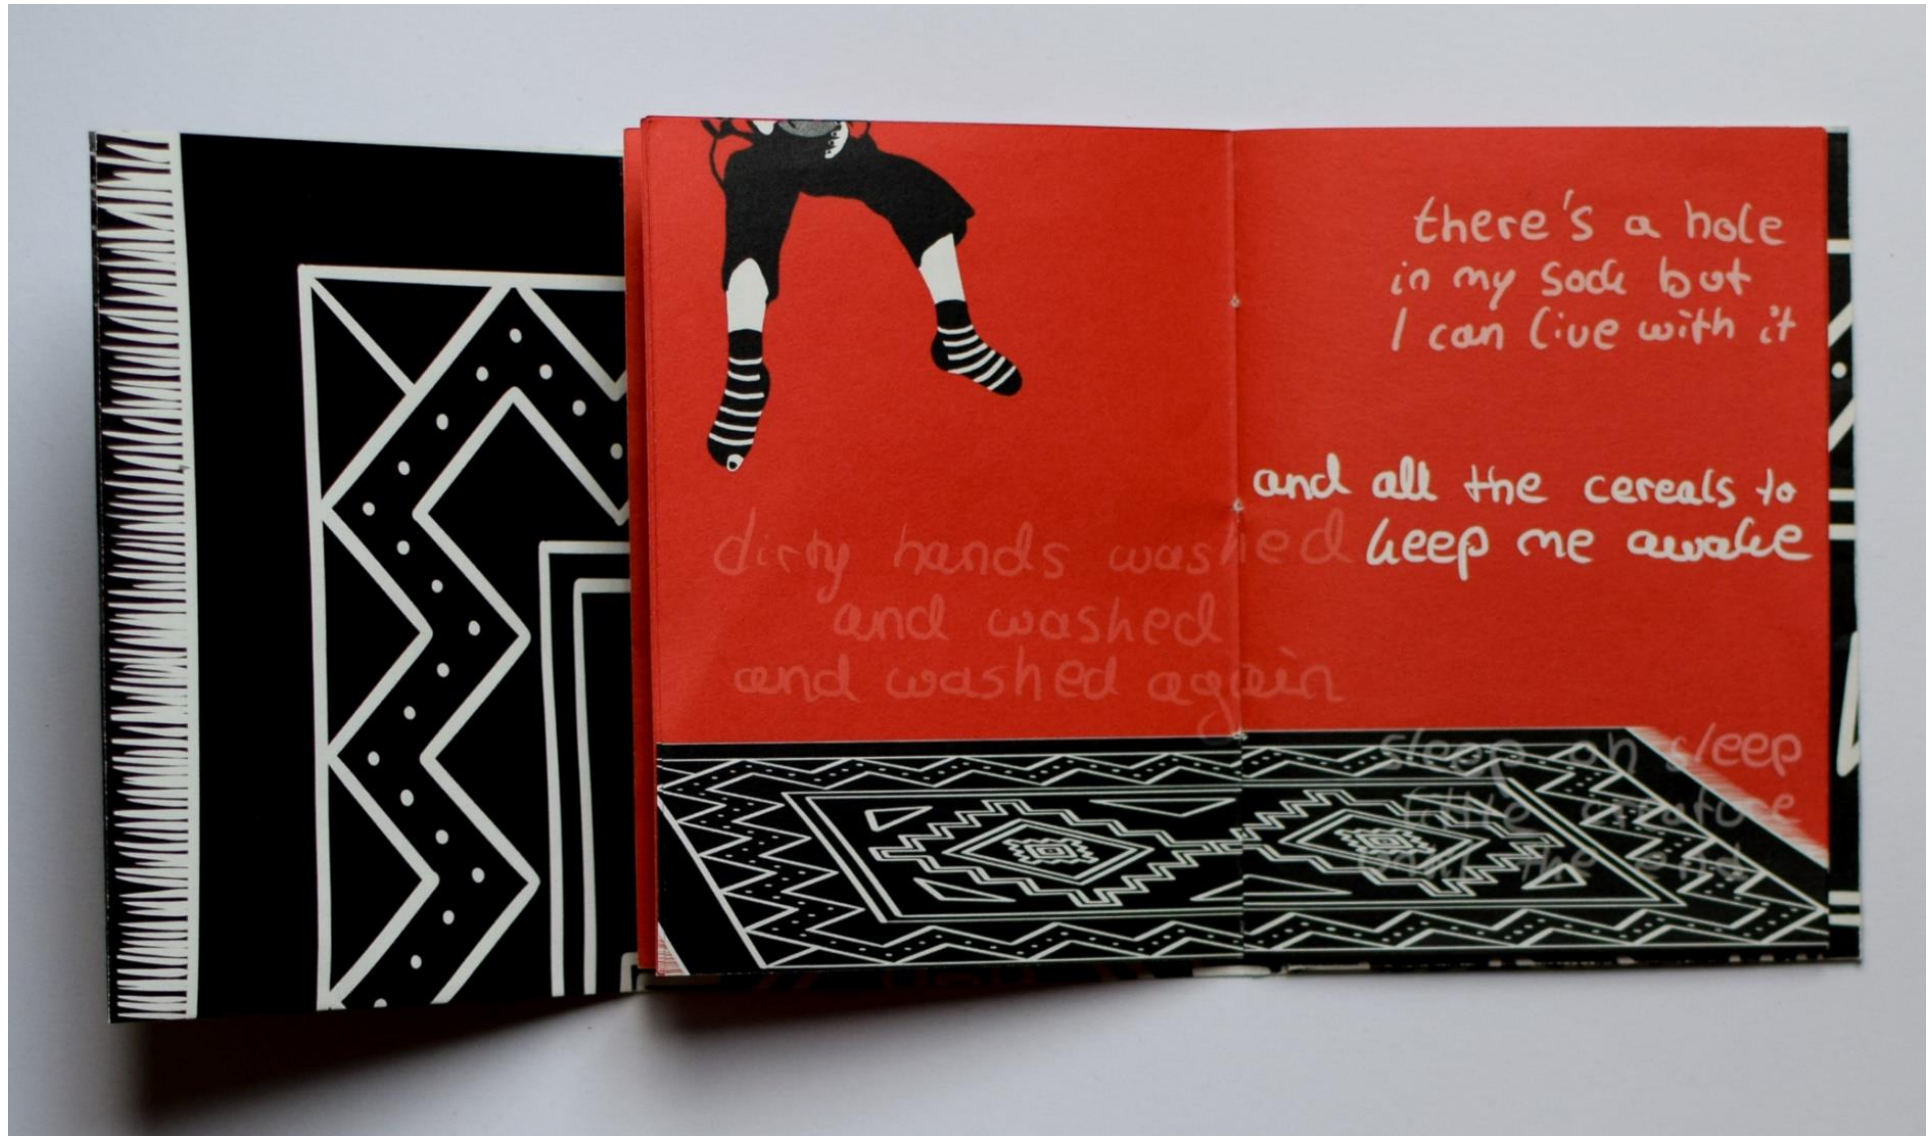 there's a hole
in my sock but
I can live with it
and all the cereals to
keep me awake
dirty hands washed
and washed
and washed again
sleep oh sleep
little creature
the end